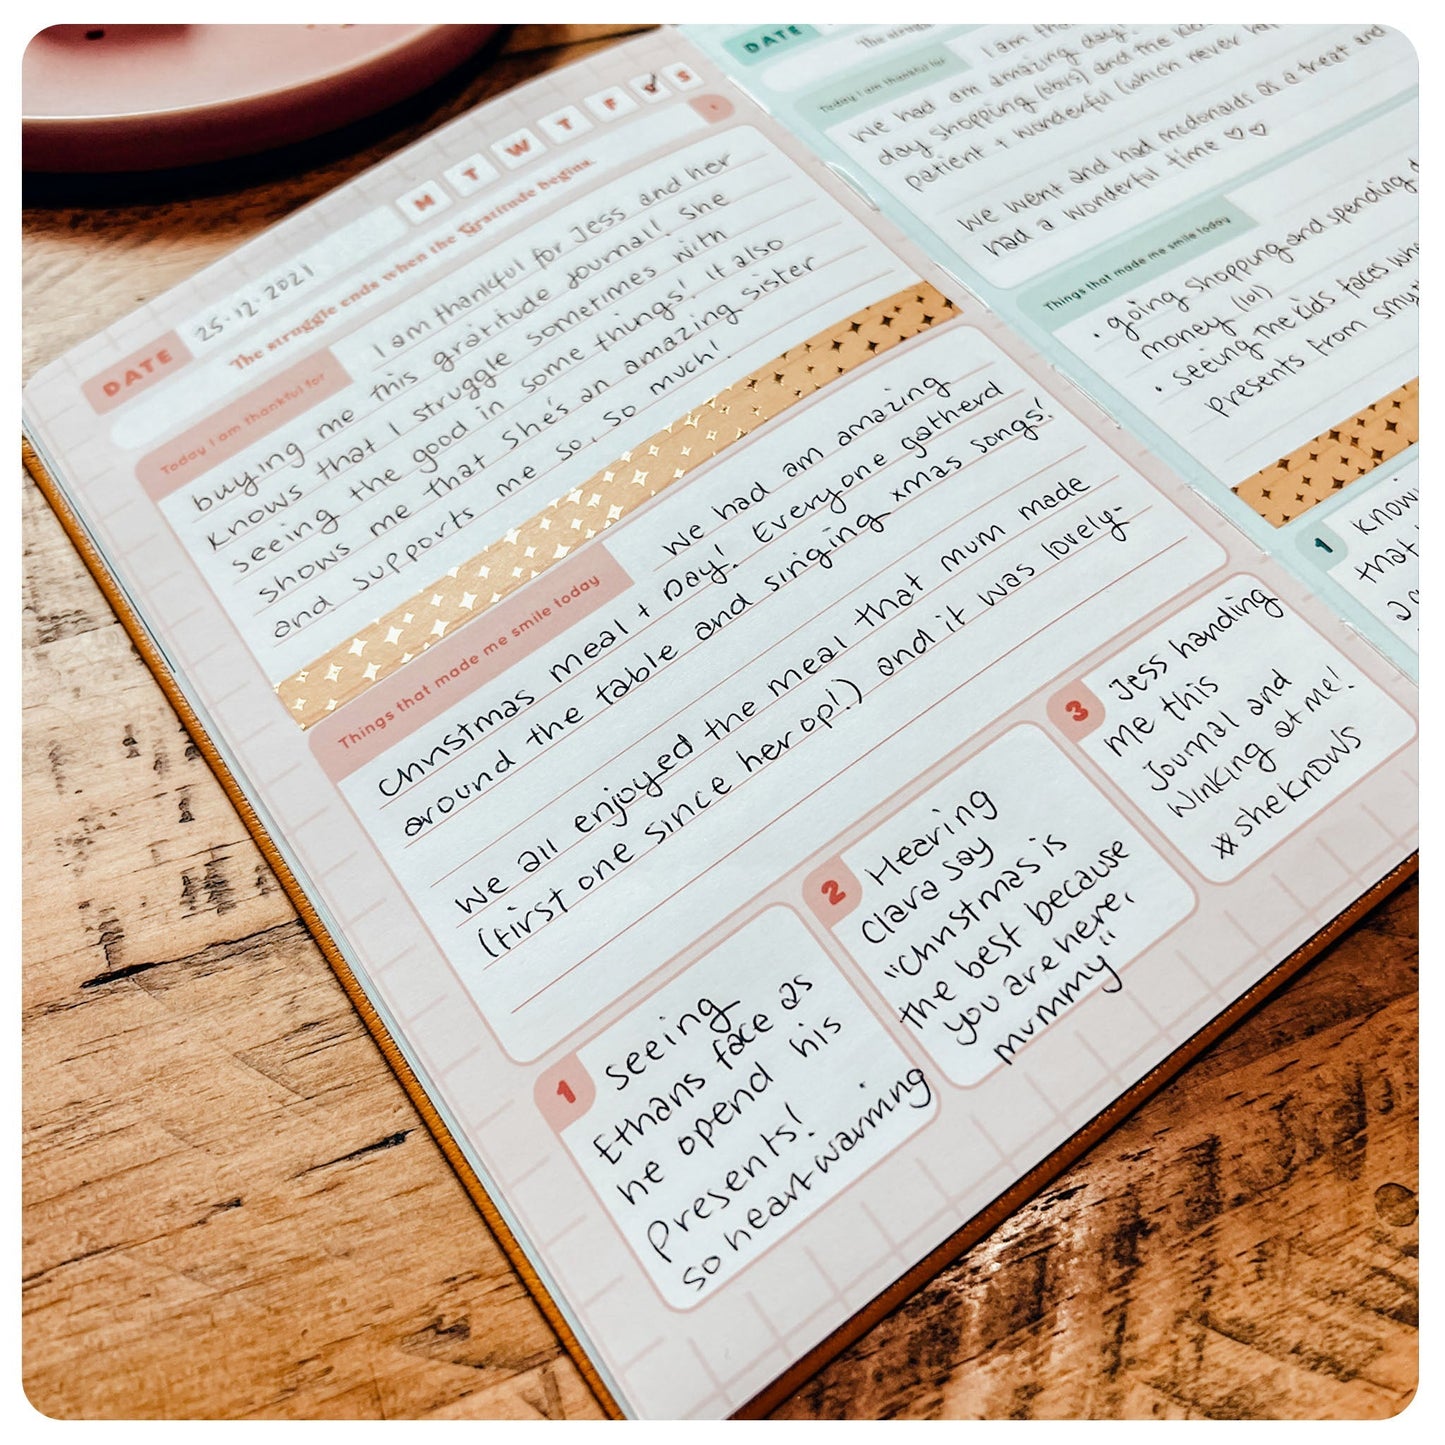 M T W T F S S
DATE 25.12.2021
1
The struggle ends when the Gratitude begins.
Today I am thankful for
I am thankful for Jess and her
buying me this gratitude journal! She
knows that I struggle sometimes with
seeing the good in some things! It also
shows me that she's an amazing sister
and supports me so, so much!
Things that made me smile today
We had am amazing
Christmas meal + Day! Everyone gatherd
around the table and singing xmas songs!
We all enjoyed the meal that mum made
(first one since her op!) and it was lovely-
1
Seeing
Ethans face as
he opend his
Presents!
so heart-warming
2
Hearing
Clara say
"Christmas is
the best because
you are here,
mummy"
3
Jess handing
me this
Journal and
Winking at me!
#sheknows
DATE
The strugg
Today I am thankful for
I am tha
We had am amazing day!
day shopping (obvs) and the kids
patient + wonderful (which never ha
We went and had mcdonalds as a treat and
had a wonderful time ♡♡
Things that made me smile today
• going shopping and spending
money (lol)
• seeing the kids faces
presents from smyt
1
Knowi
that